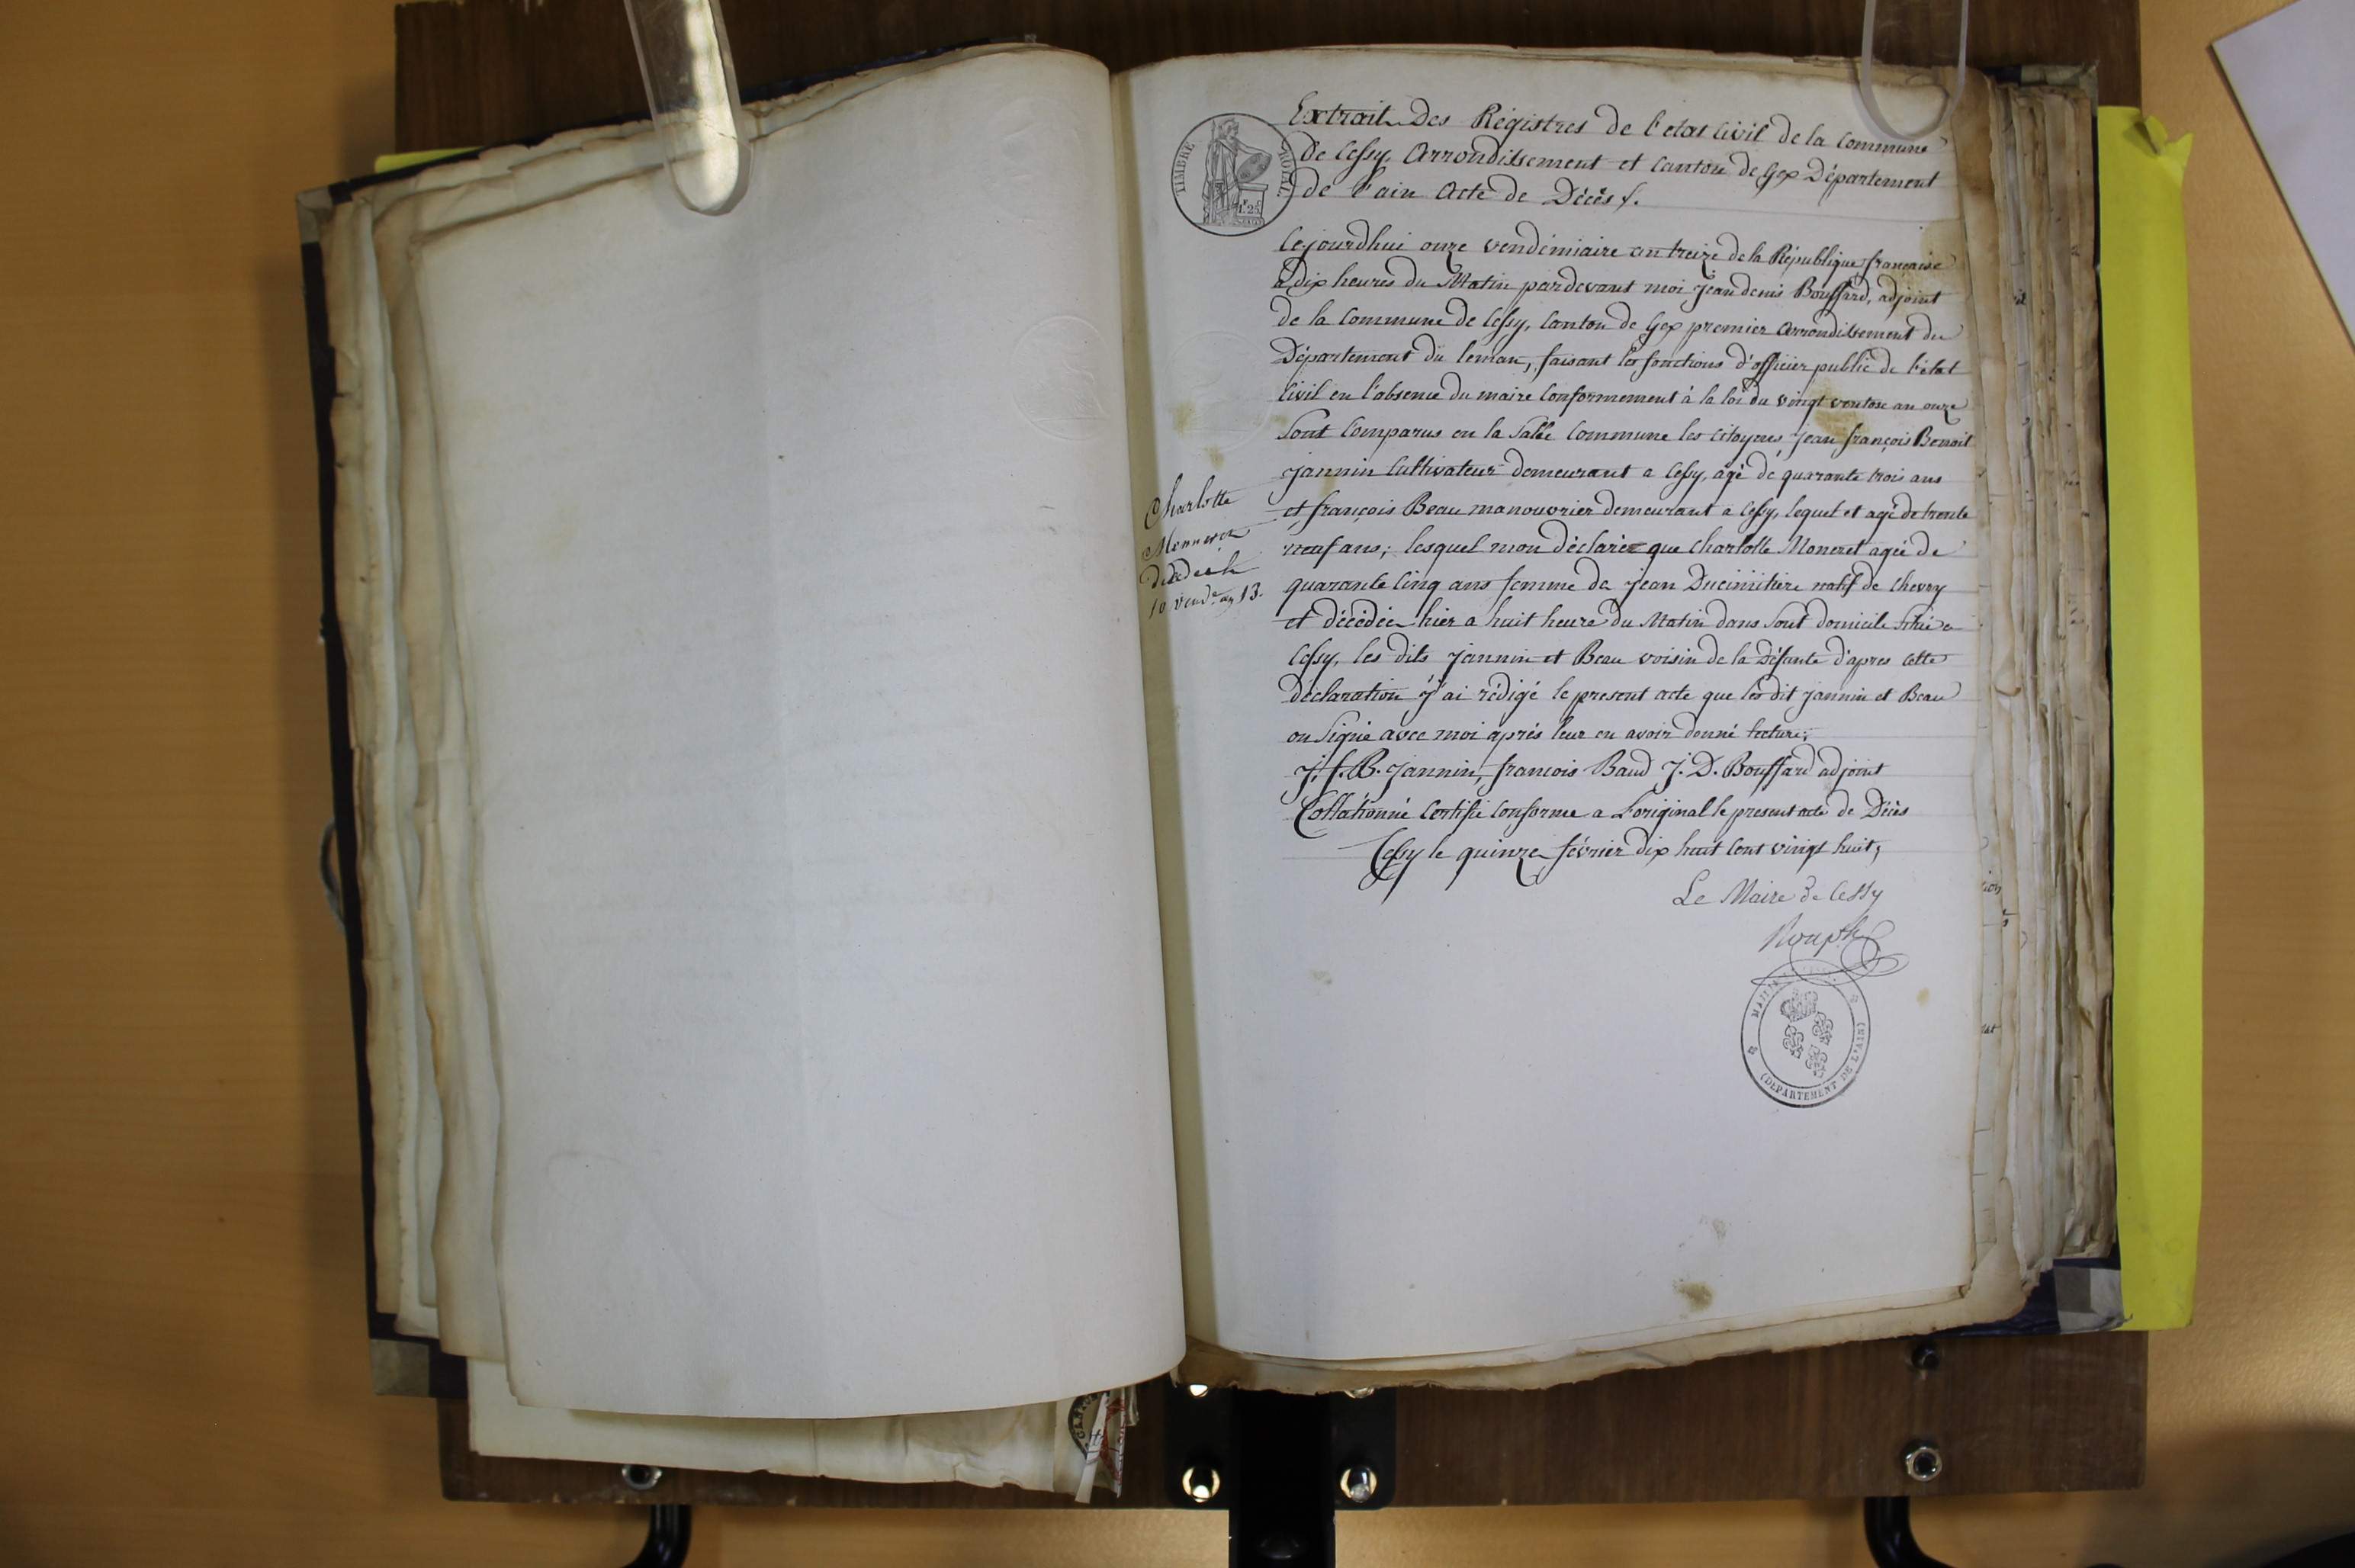 TIMBRE ROYAL
1F. 25
Extrait Des Régistres de l'etat Civil de la Commune
de Cessy, Arrondissement et Canton de Gex Département
de l'ain Acte de Décès.
Cejourdhui onze vendémiaire an treize de la République francaise
à dix heures du Matin pardevant moi jean denis Bouffard, adjoint
de la Commune de Cessy, Canton de Gex premier Arrondissement du
Département du leman, faisant les fonctions d'officier public de l'état
Civil en l'absence du maire Conformement à la loi du vingt ventose an onze
Sont Comparus en la Salle Commune les Citoyens jean françois Benoit
jannin Cultivateur demeurant a Cessy, agé de quarante trois ans
et françois Beau manouvrier demeurant a Cessy, lequel et agé de trente
neuf ans; lesquel mon déclaréz que Charlotte Moneret agée de
quarante Cinq ans femme de jean Ducimitière natif de Chevry
et décédée hier a huit heure du Matin dans Sont domicile Situé a
Cessy, les dits jannin et Beau voisin de la Défante d'apres Cette
déclaration j'ai rédigé le present acte que les dit jannin et Beau
on Signé avec moi après leur en avoir donné lecture;
J. f. B. jannin, francois Baud J. D. Bouffard adjoint
Collationné Certifié Conforme a L'original le present acte de Décès
Cessy le quinze février dix huit Cent vingt huit;
Le Maire de Cessy
Charlotte
10 Vend.re an 13.
MAIRIE
(DÉPARTEMENT DE L'AIN)